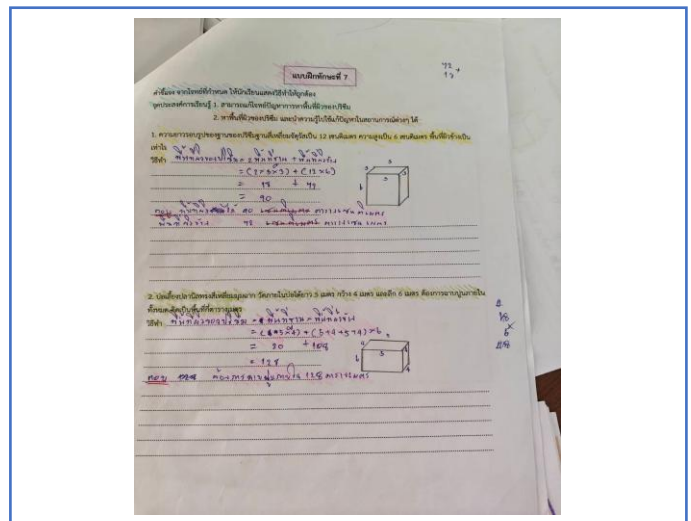 72 +
18
แบบฝึกทักษะที่ 7
คำชี้แจง จากโจทย์ที่กำหนด ให้นักเรียนแสดงวิธีทำให้ถูกต้อง
จุดประสงค์การเรียนรู้ 1. สามารถแก้โจทย์ปัญหาการหาพื้นที่ผิวของปริซึม
2. หาพื้นที่ผิวของปริซึม และนำความรู้ไปใช้แก้ปัญหาในสถานการณ์ต่างๆ ได้
1. ความยาวรอบรูปของฐานของปริซึมฐานสี่เหลี่ยมจัตุรัสเป็น 12 เซนติเมตร ความสูงเป็น 6 เซนติเมตร พื้นที่ผิวข้างเป็น
เท่าไร
วิธีทำ พื้นที่ผิวของปริซึม = พื้นที่ฐาน + พื้นที่ผิวข้าง
= (2×3×3) + (12×6)
= 18 + 72
= 90
ตอบ พื้นที่ผิว ได้ 90 ตารางเซนติเมตร
พื้นที่ผิวข้าง 72 ตารางเซนติเมตร
2. บ่อเลี้ยงปลานิลทรงสี่เหลี่ยมมุมฉาก วัดภายในบ่อได้ยาว 5 เมตร กว้าง 4 เมตร และลึก 6 เมตร ต้องการฉาบปูนภายใน
ทั้งหมด คิดเป็นพื้นที่กี่ตารางเมตร
วิธีทำ พื้นที่ผิวของปริซึม = พื้นที่ฐาน + พื้นที่ผิวข้าง
= (5×4) + (5+4+5+4)×6
= 20 + 108
= 128
ตอบ ต้องการฉาบปูนภายใน 128 ตารางเมตร
18
×
6